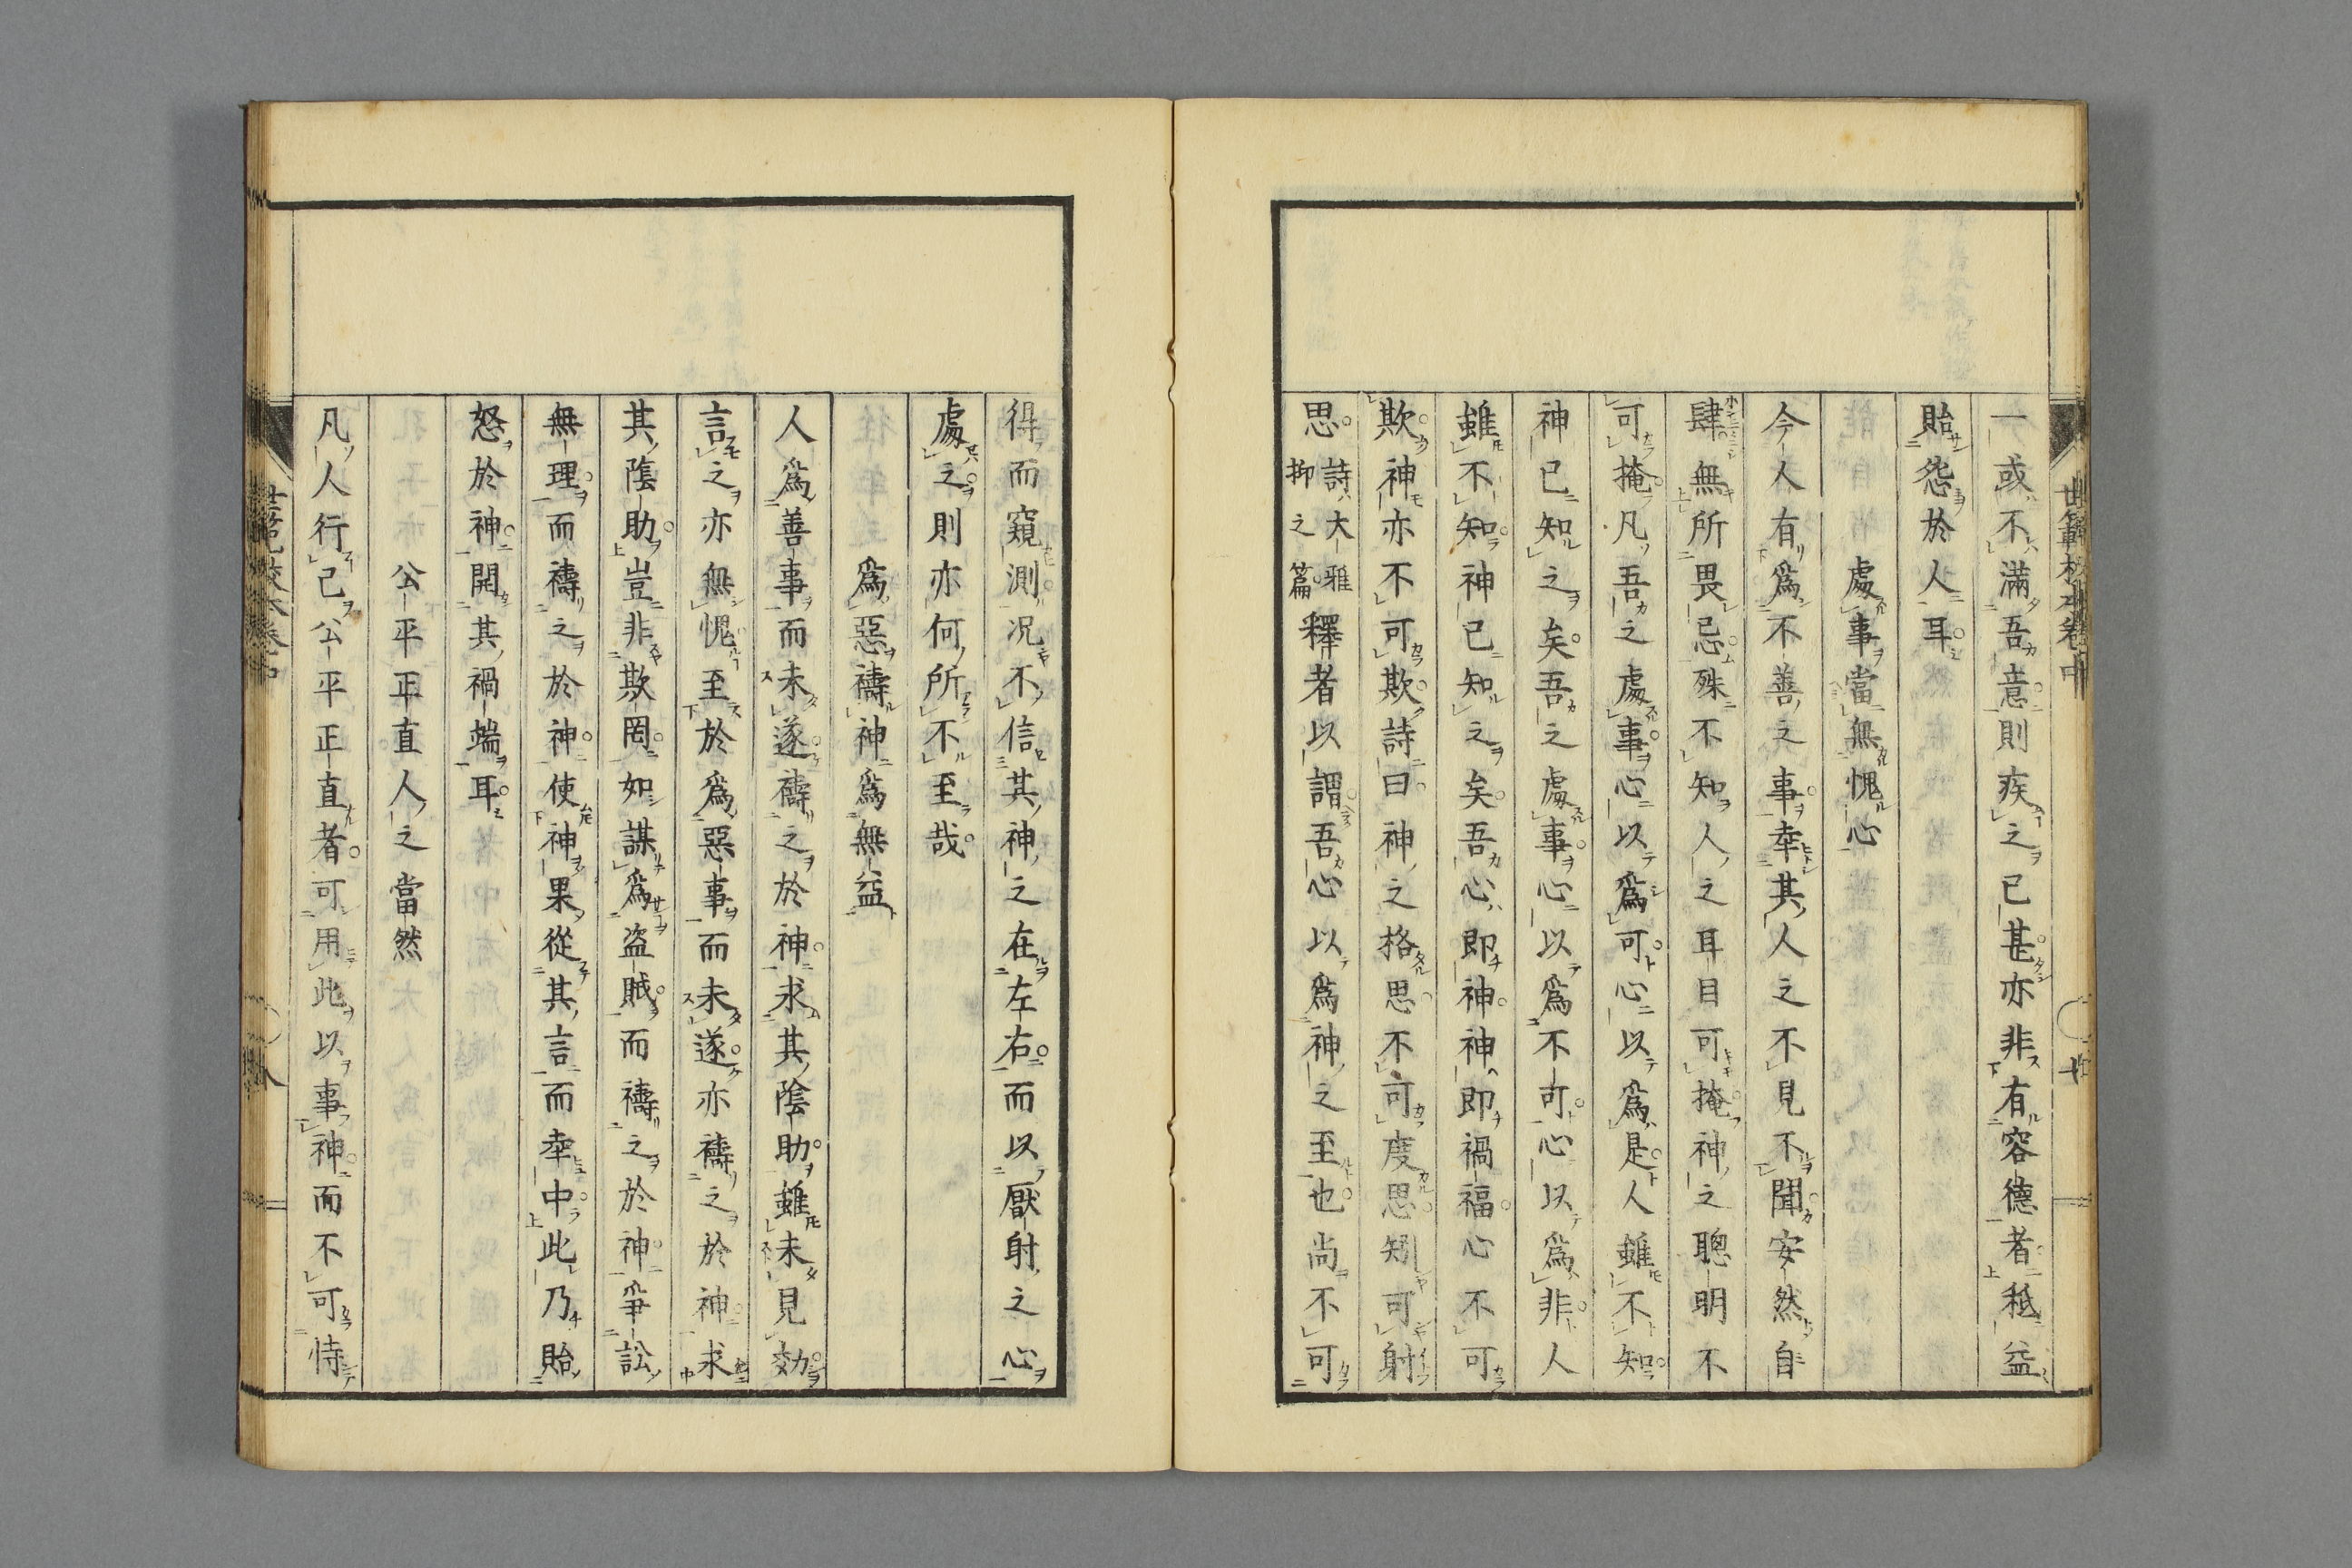 一或不滿吾意則疾之已甚亦非有容德者秪益
貽怨於人耳
處事當無愧心
今人有爲不善之事幸其人之不見不聞安然自
肆無所畏忌殊不知人之耳目可掩神之聰明不
可掩凡吾之處事心以爲可心以爲是人雖不知
神已知之矣吾之處事心以爲不可心以爲非人
雖不知神已知之矣吾心即神神即禍福心不可
欺神亦不可欺詩曰神之格思不可度思矧可射
思詩大雅抑之篇釋者以謂吾心以爲神之至也尚不可
得而窺測况不信其神之在左右而以厭射之心
處之則亦何所不至哉
爲惡禱神爲無益
人爲善事而未遂禱之於神求其陰助雖未見効
言之亦無愧至於爲惡事而未遂亦禱之於神求
其陰助豈非欺罔如謀爲盗賊而禱之於神爭訟
無理而禱之於神使神果從其言而幸中此乃貽
怒於神開其禍端耳
公平正直人之當然
凡人行己公平正直者可用此以事神而不可恃